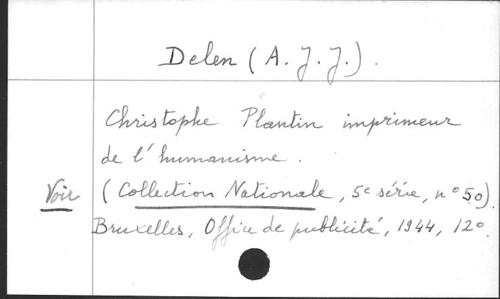 Delen (A. J. J.).
Christophe Plantin imprimeur
de l'humanisme.
Voir (Collection Nationale, 5e série, n° 50).
Bruxelles, Office de publicité, 1944, 12°.